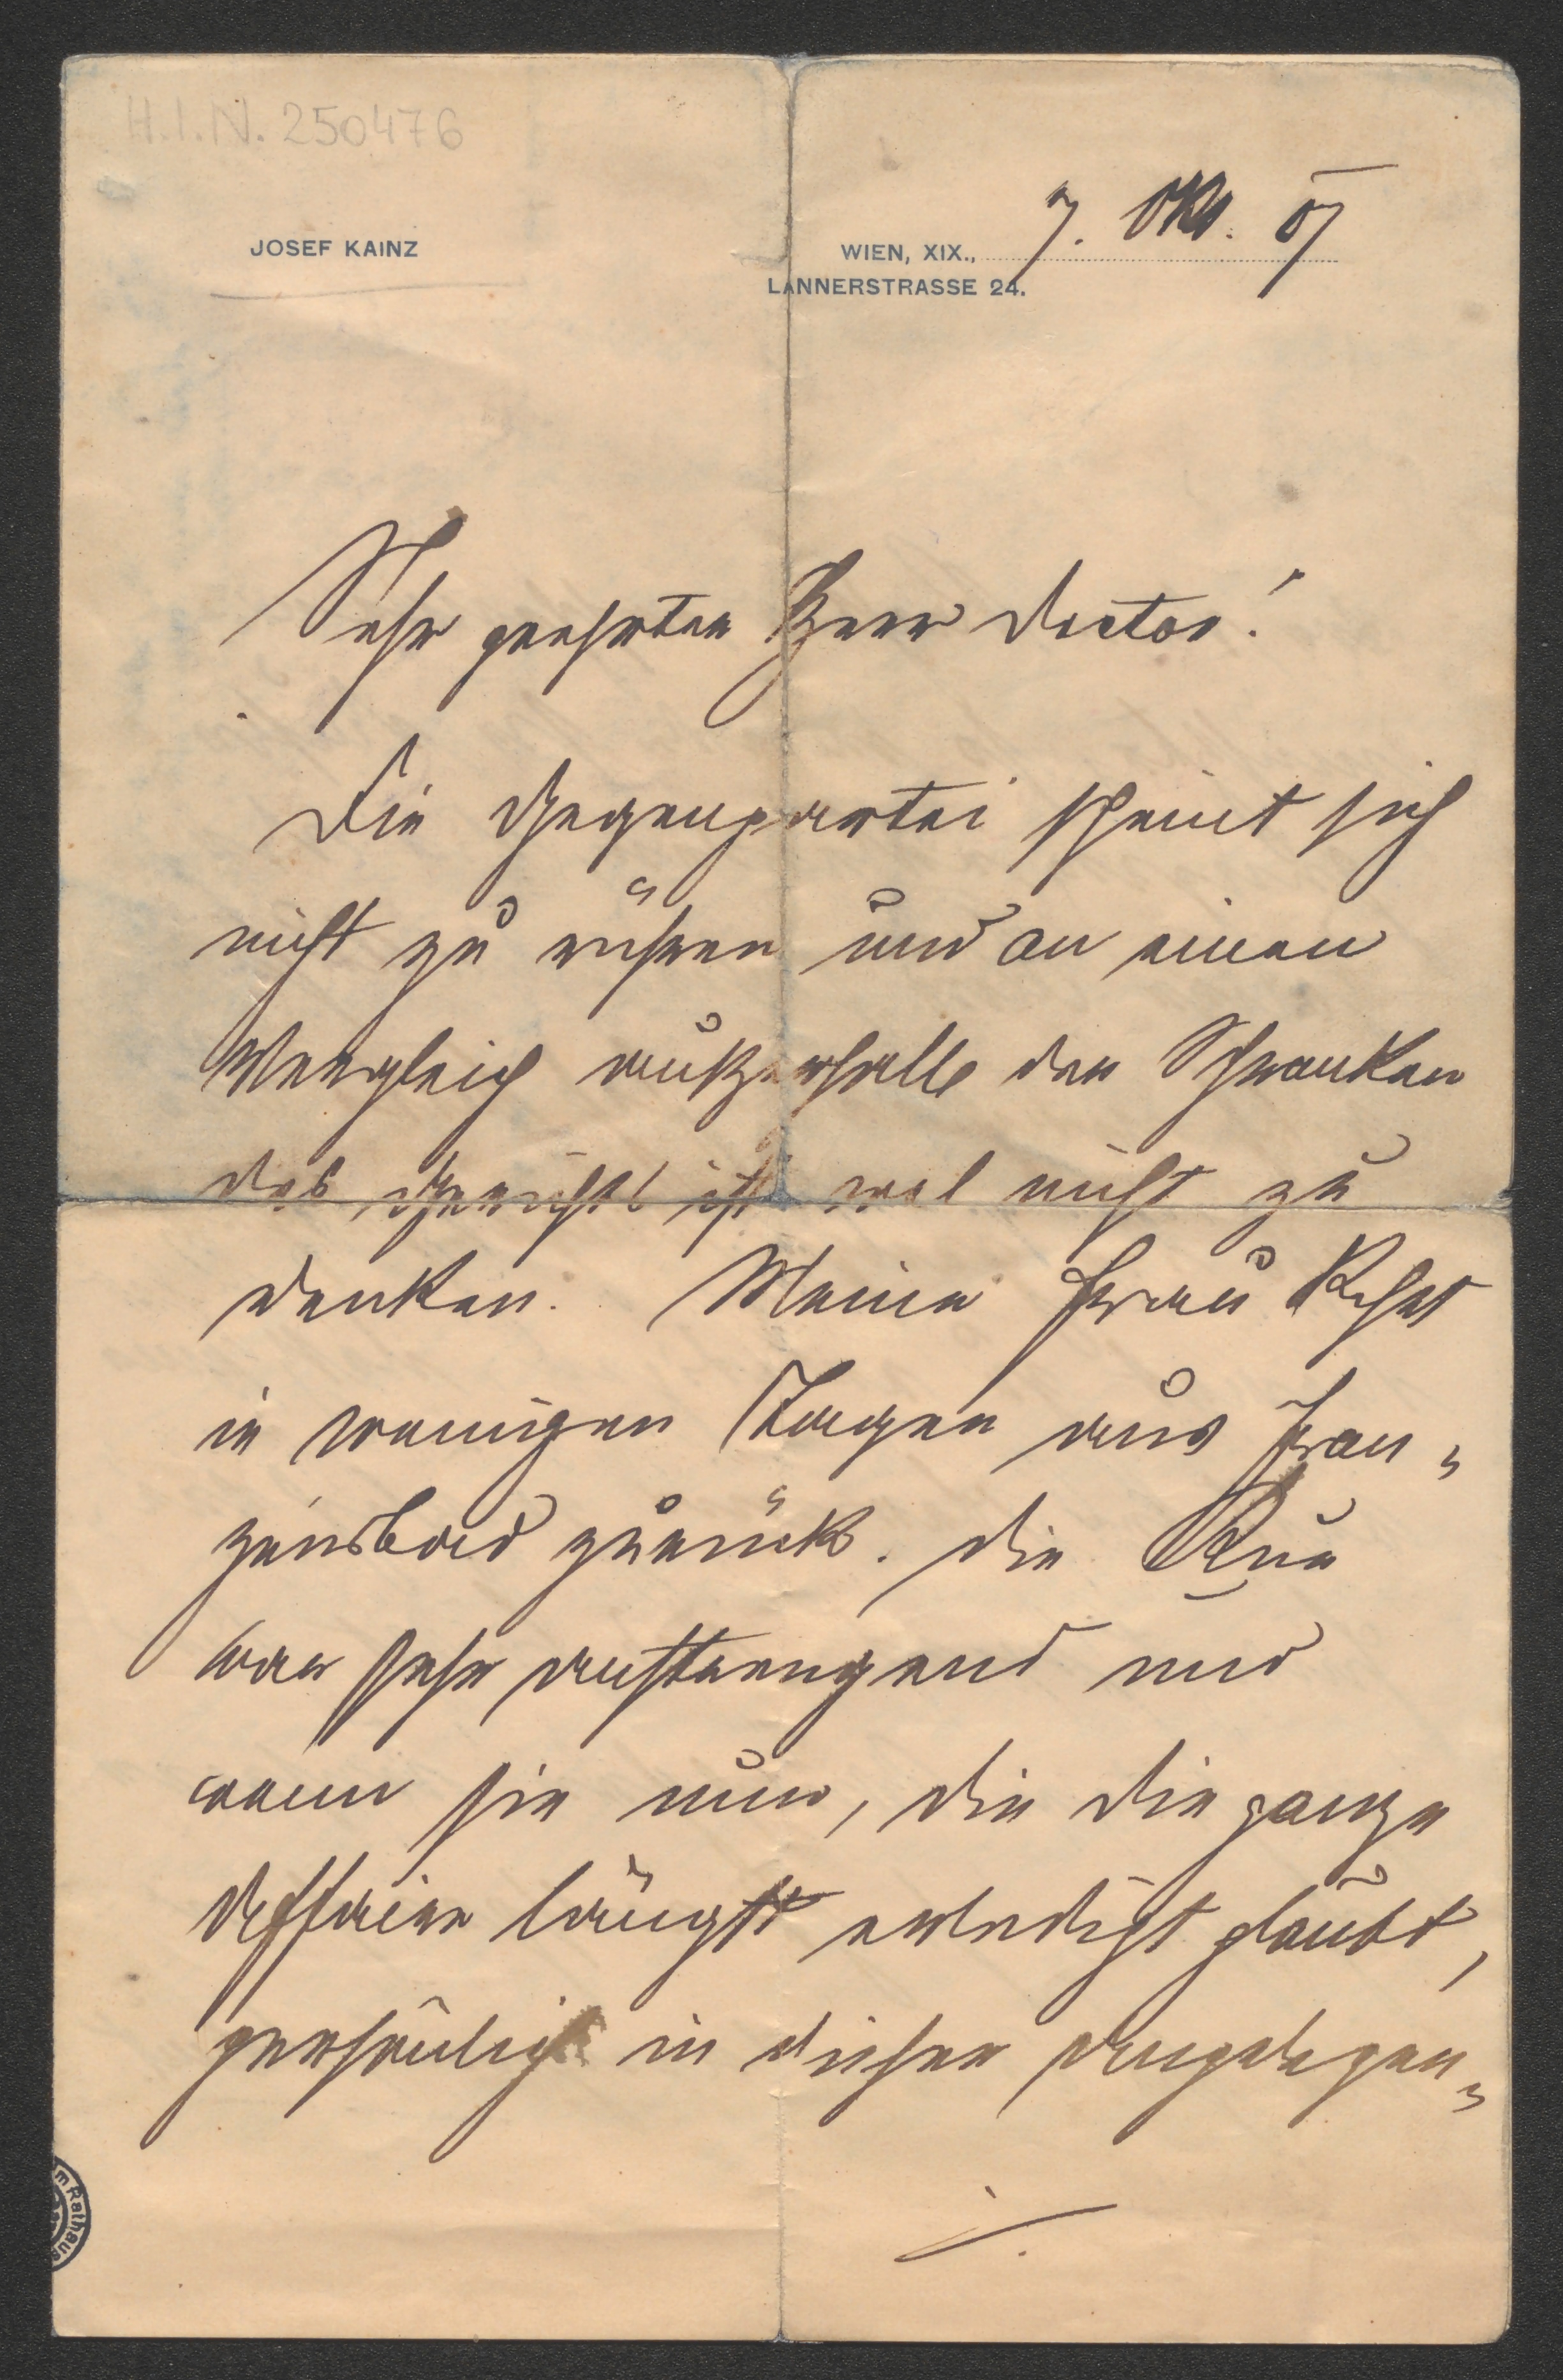 H.I.N. 250476
JOSEF KAINZ
WIEN, XIX., 7. Okt. 07
LANNERSTRASSE 24.
Sehr geehrter Herr Doctor!
Die Gegenpartei scheint sich
nicht zu rühren und an einen
Vergleich außerhalb der Schranken
des Gerichts ist wol nicht zu
denken. Meine Frau kehrt
in wenigen Tagen aus Fran-
zensbad zurück. Die Kur
war sehr anstrengend und
wenn sie nun, die die ganze
Affaire längst erledigt glaubt,
persönlich in dieser Angelegen-
./.
m Rathaus